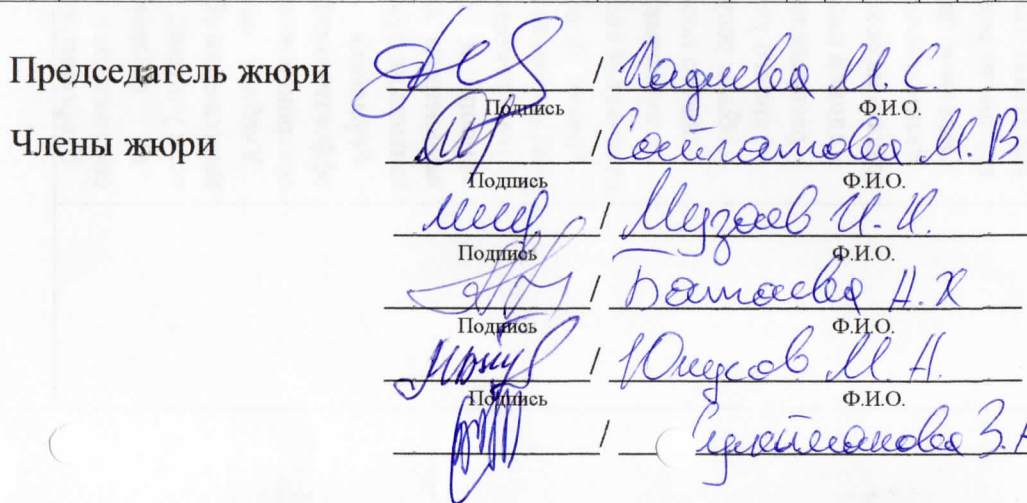 Председатель жюри / Кадиева М. С.
Подпись Ф.И.О.
Члены жюри / Сайпатова М. В
Подпись Ф.И.О.
/ Музаев И. И.
Подпись Ф.И.О.
/ Батаева А. Х
Подпись Ф.И.О.
/ Юнусов М. А.
Подпись Ф.И.О.
/ Сулейманова З.